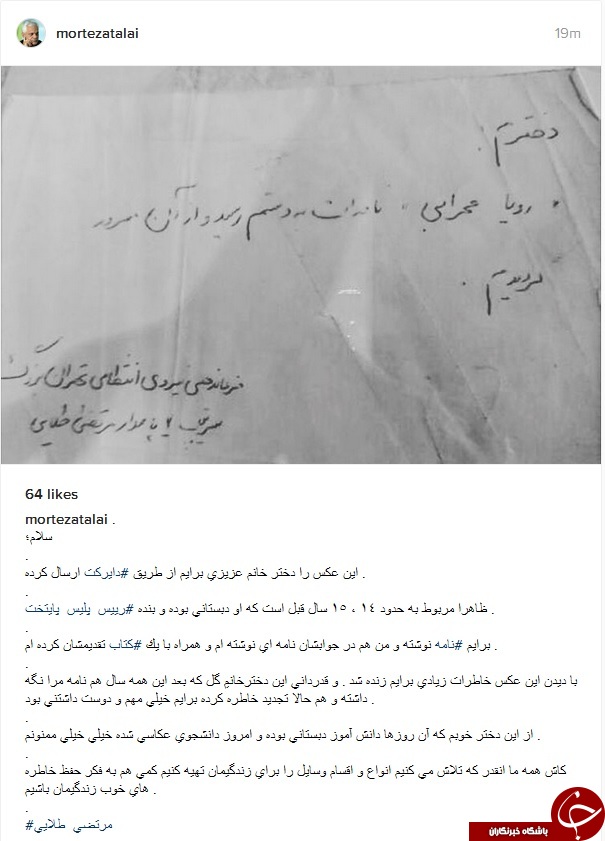 mortezatalai
19m
دخترم
رويا محرابي، نامه ات به دستم رسيد و از آن مسرور
گرديدم.
فرماندهي نيروي انتظامي تهران بزرگ
سرتيپ ۲ پاسدار مرتضي طلايي
64 likes
mortezatalai .
سلام؛
.
اين عكس را دختر خانم عزيزي برايم از طريق #دايركت ارسال كرده .
.
ظاهرا مربوط به حدود ١٤ ، ١٥ سال قبل است كه او دبستاني بوده و بنده #رييس_پليس_پايتخت .
.
برايم #نامه نوشته و من هم در جوابشان نامه اي نوشته ام و همراه با يك #كتاب تقديمشان كرده ام .
.
با ديدن اين عكس خاطرات زيادي برايم زنده شد . و قدرداني اين دخترخانمِ گل كه بعد اين همه سال هم نامه مرا نگه
داشته و هم حالا تجديد خاطره كرده برايم خيلي مهم و دوست داشتني بود .
.
از اين دختر خوبم كه آن روزها دانش آموز دبستاني بوده و امروز دانشجوي عكاسي شده خيلي خيلي ممنونم .
.
كاش همه ما انقدر كه تلاش مي كنيم انواع و اقسام وسايل را براي زندگيمان تهيه كنيم كمي هم به فكر حفظ خاطره
هاي خوب زندگيمان باشيم .
.
#مرتضي_طلايي
باشگاه خبرنگاران